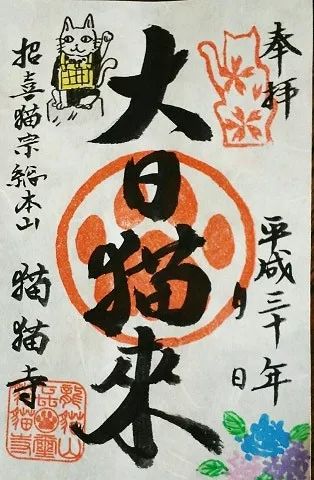 奉拝
平成三十年
月
日
大日猫來
招喜猫宗総本山
猫猫寺